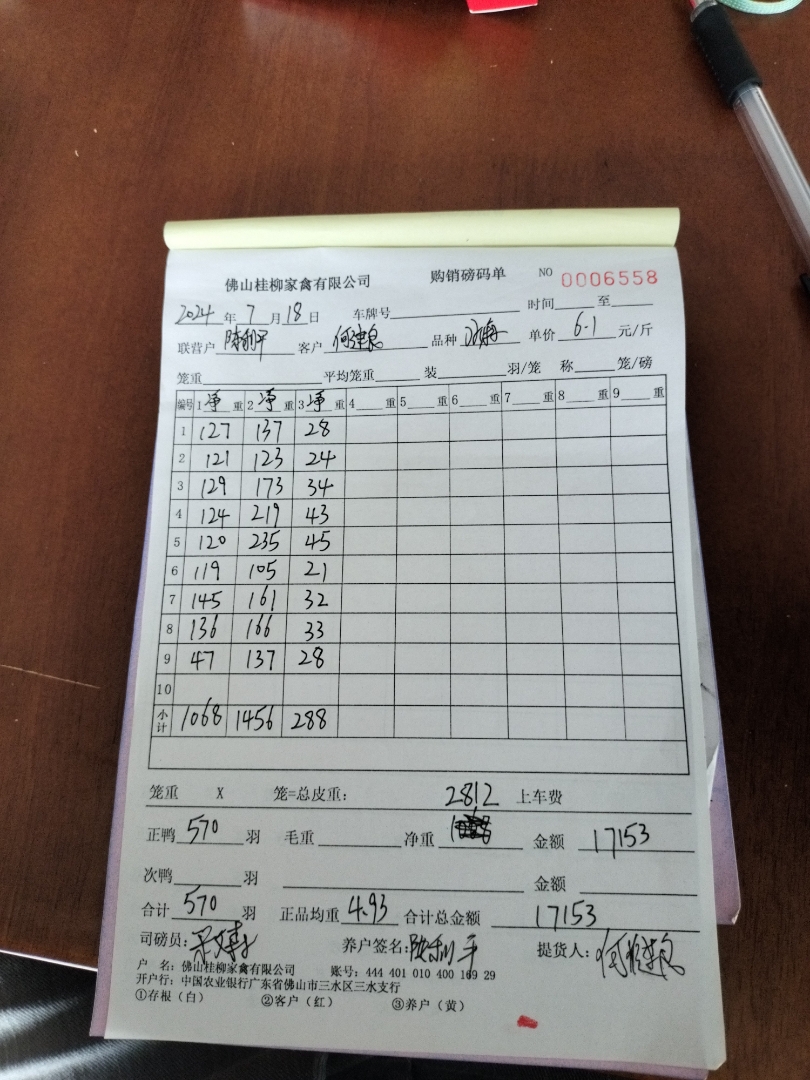 佛山桂柳家禽有限公司 购销磅码单 NO 0006558
2024年7月18日 车牌号 时间 至
联营户 陈利平 客户 品种 单价 6.1 元/斤
笼重 平均笼重 装 羽/笼 称 笼/磅
编号 1净重 2净重 3净重 4 重 5 重 6 重 7 重 8 重 9 重
1 127 137 28
2 121 123 24
3 129 173 34
4 124 219 43
5 120 235 45
6 119 105 21
7 145 161 32
8 136 166 33
9 47 137 28
10
小计 1068 1456 288
笼重 X 笼=总皮重: 2812 上车费
正鸭 570 羽 毛重 净重 金额 17153
次鸭 羽 金额
合计 570 羽 正品均重 4.93 合计总金额 17153
司磅员: 养户签名: 陈利平 提货人:
户 名: 佛山桂柳家禽有限公司 账号: 444 401 010 400 169 29
开户行: 中国农业银行广东省佛山市三水区三水支行
①存根(白) ②客户(红) ③养户(黄)